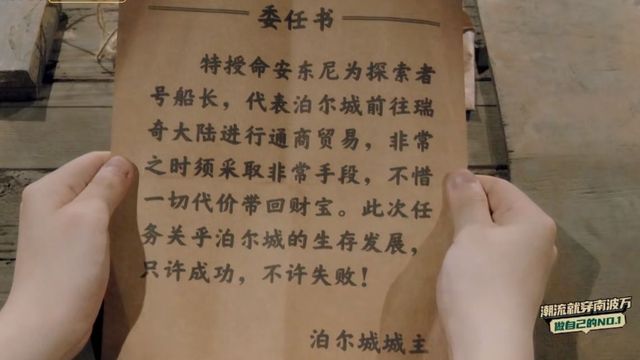 委任书
特授命安东尼为探索者
号船长，代表泊尔城前往瑞
奇大陆进行通商贸易，非常
之时须采取非常手段，不惜
一切代价带回财宝。此次任
务关乎泊尔城的生存发展，
只许成功，不许失败！
泊尔城城主
潮流就穿南波万
做自己的NO.1